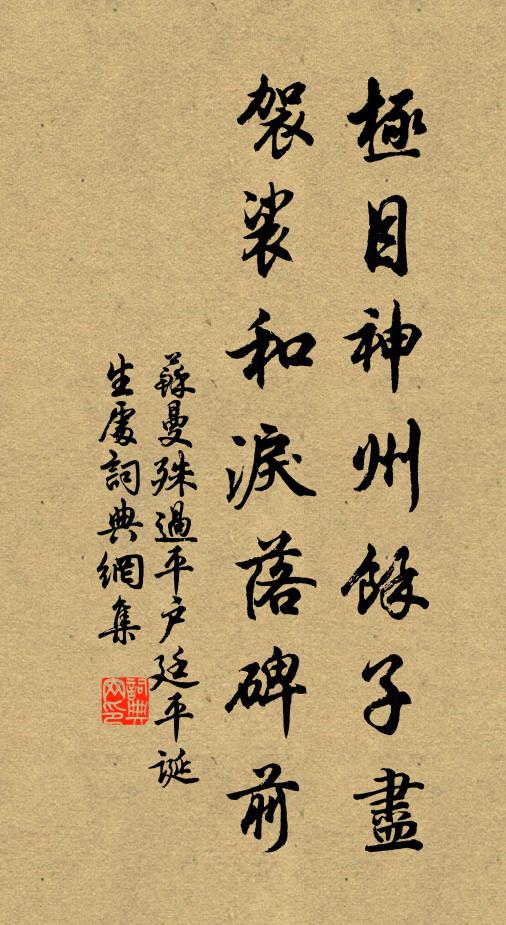 極目神州餘子盡
袈裟和淚落碑前
蘇曼殊過平户延平誕
生處詞典網集
詞典網印